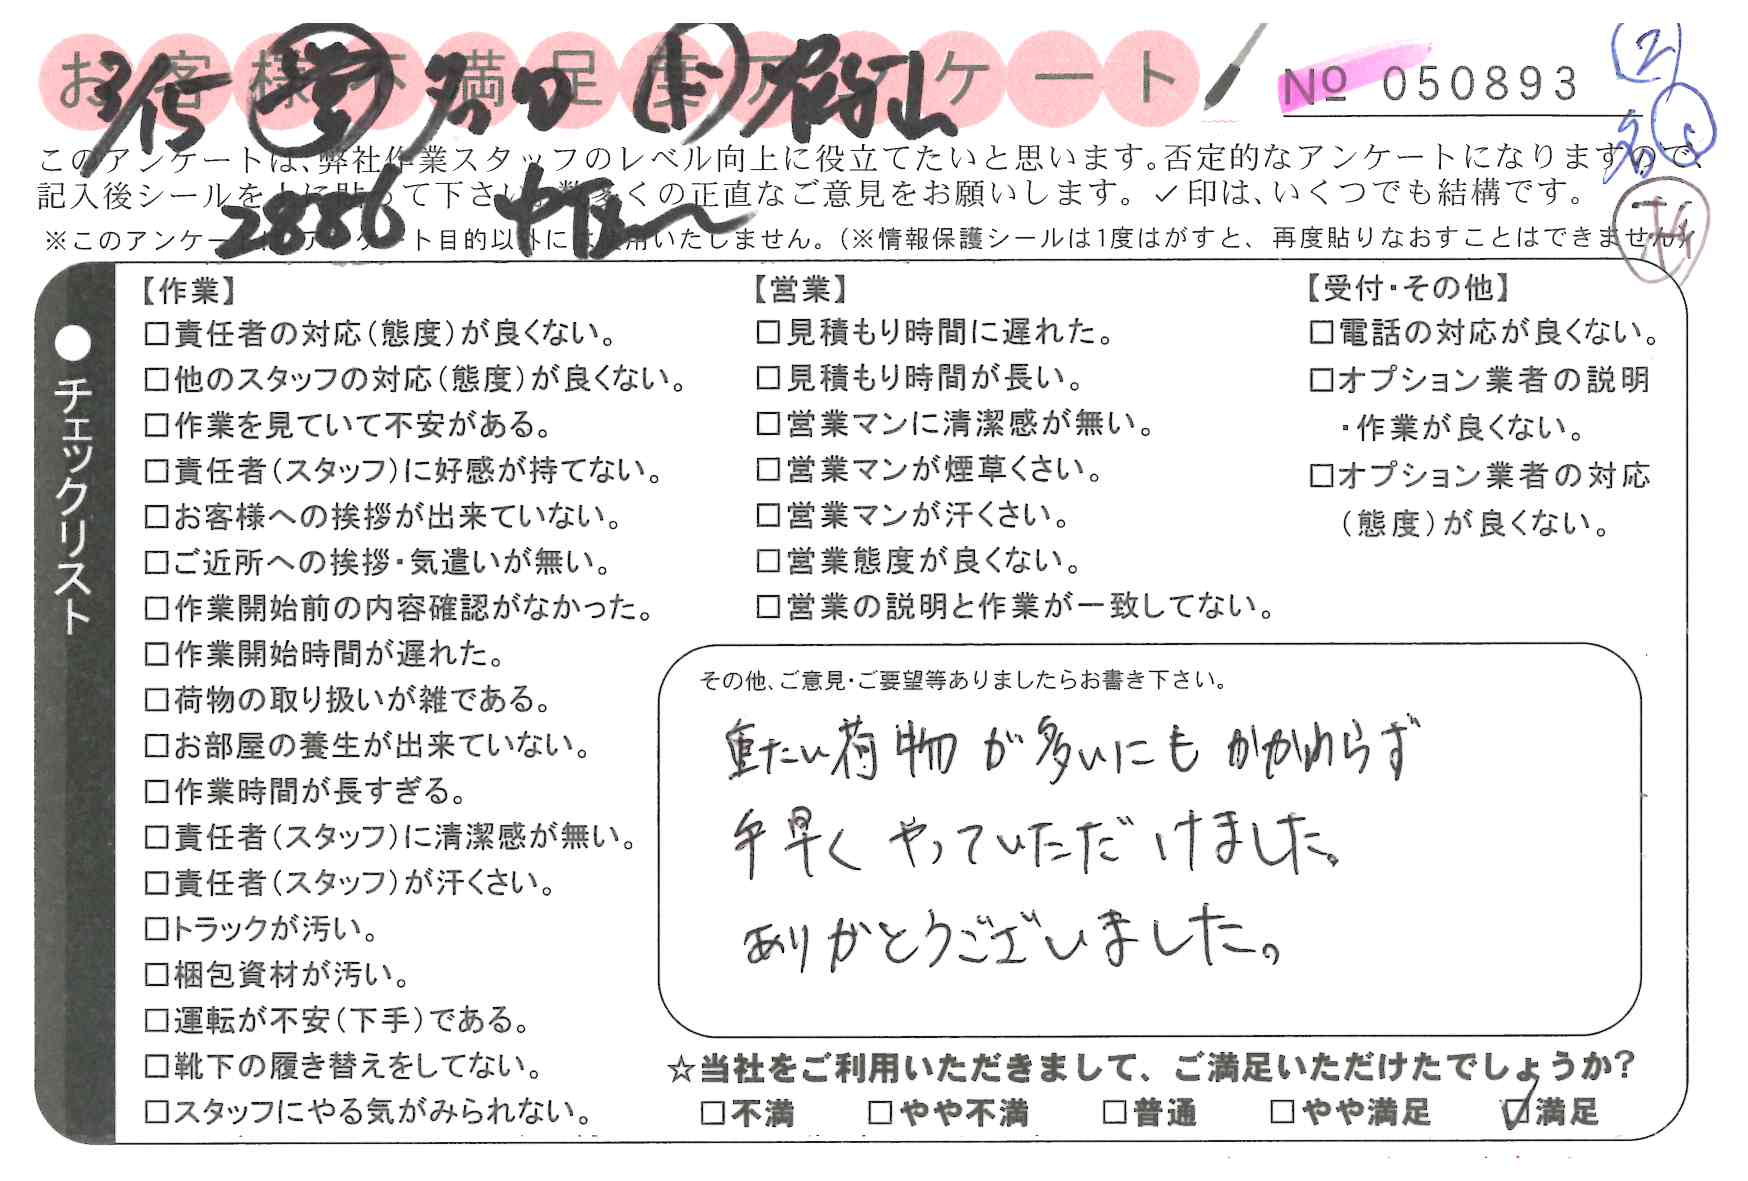 お客様不満足度アンケート
№ 050893
2
3/15
このアンケートは、弊社作業スタッフのレベル向上に役立てたいと思います。否定的なアンケートになりますので、
記入後シールを上に貼って下さい。数多くの正直なご意見をお願いします。✓印は、いくつでも結構です。
2886
※このアンケートは、アンケート目的以外には使用いたしません。(※情報保護シールは1度はがすと、再度貼りなおすことはできません)
●チェックリスト
【作業】
□責任者の対応(態度)が良くない。
□他のスタッフの対応(態度)が良くない。
□作業を見ていて不安がある。
□責任者(スタッフ)に好感が持てない。
□お客様への挨拶が出来ていない。
□ご近所への挨拶・気遣いが無い。
□作業開始前の内容確認がなかった。
□作業開始時間が遅れた。
□荷物の取り扱いが雑である。
□お部屋の養生が出来ていない。
□作業時間が長すぎる。
□責任者(スタッフ)に清潔感が無い。
□責任者(スタッフ)が汗くさい。
□トラックが汚い。
□梱包資材が汚い。
□運転が不安(下手)である。
□靴下の履き替えをしてない。
□スタッフにやる気がみられない。
【営業】
□見積もり時間に遅れた。
□見積もり時間が長い。
□営業マンに清潔感が無い。
□営業マンが煙草くさい。
□営業マンが汗くさい。
□営業態度が良くない。
□営業の説明と作業が一致してない。
【受付・その他】
□電話の対応が良くない。
□オプション業者の説明
・作業が良くない。
□オプション業者の対応
(態度)が良くない。
その他、ご意見・ご要望等ありましたらお書き下さい。
重たい荷物が多いにもかかわらず
手早くやっていただけました。
ありがとうございました。
☆当社をご利用いただきまして、ご満足いただけたでしょうか?
□不満 □やや不満 □普通 □やや満足 ☑満足